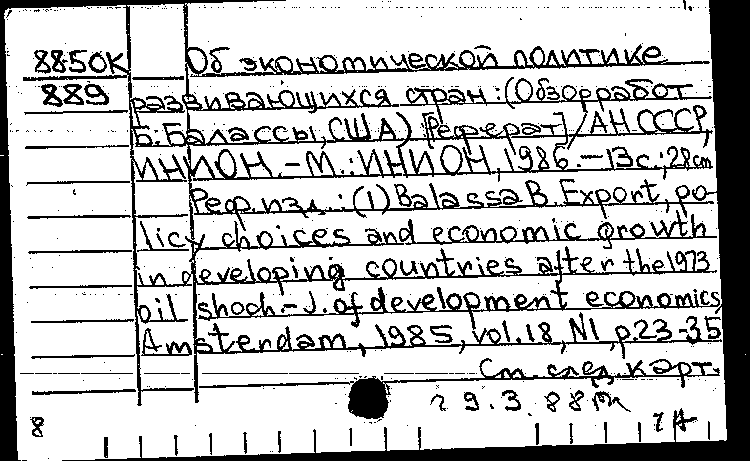 8850К Об экономической политике
889 развивающихся стран : (Обзор работ
Б. Балассы, США) [Реферат] / АН СССР,
ИНИОН. – М. : ИНИОН, 1986. – 13с. ; 28см
Реф. изд. : (1) Balassa B. Export, po-
licy choices and economic growth
in developing countries after the 1973
oil shoch. – J. of development economics,
Amsterdam, 1985, vol. 18, N1, p. 23-35
См. след. карт.
29.3.88
8